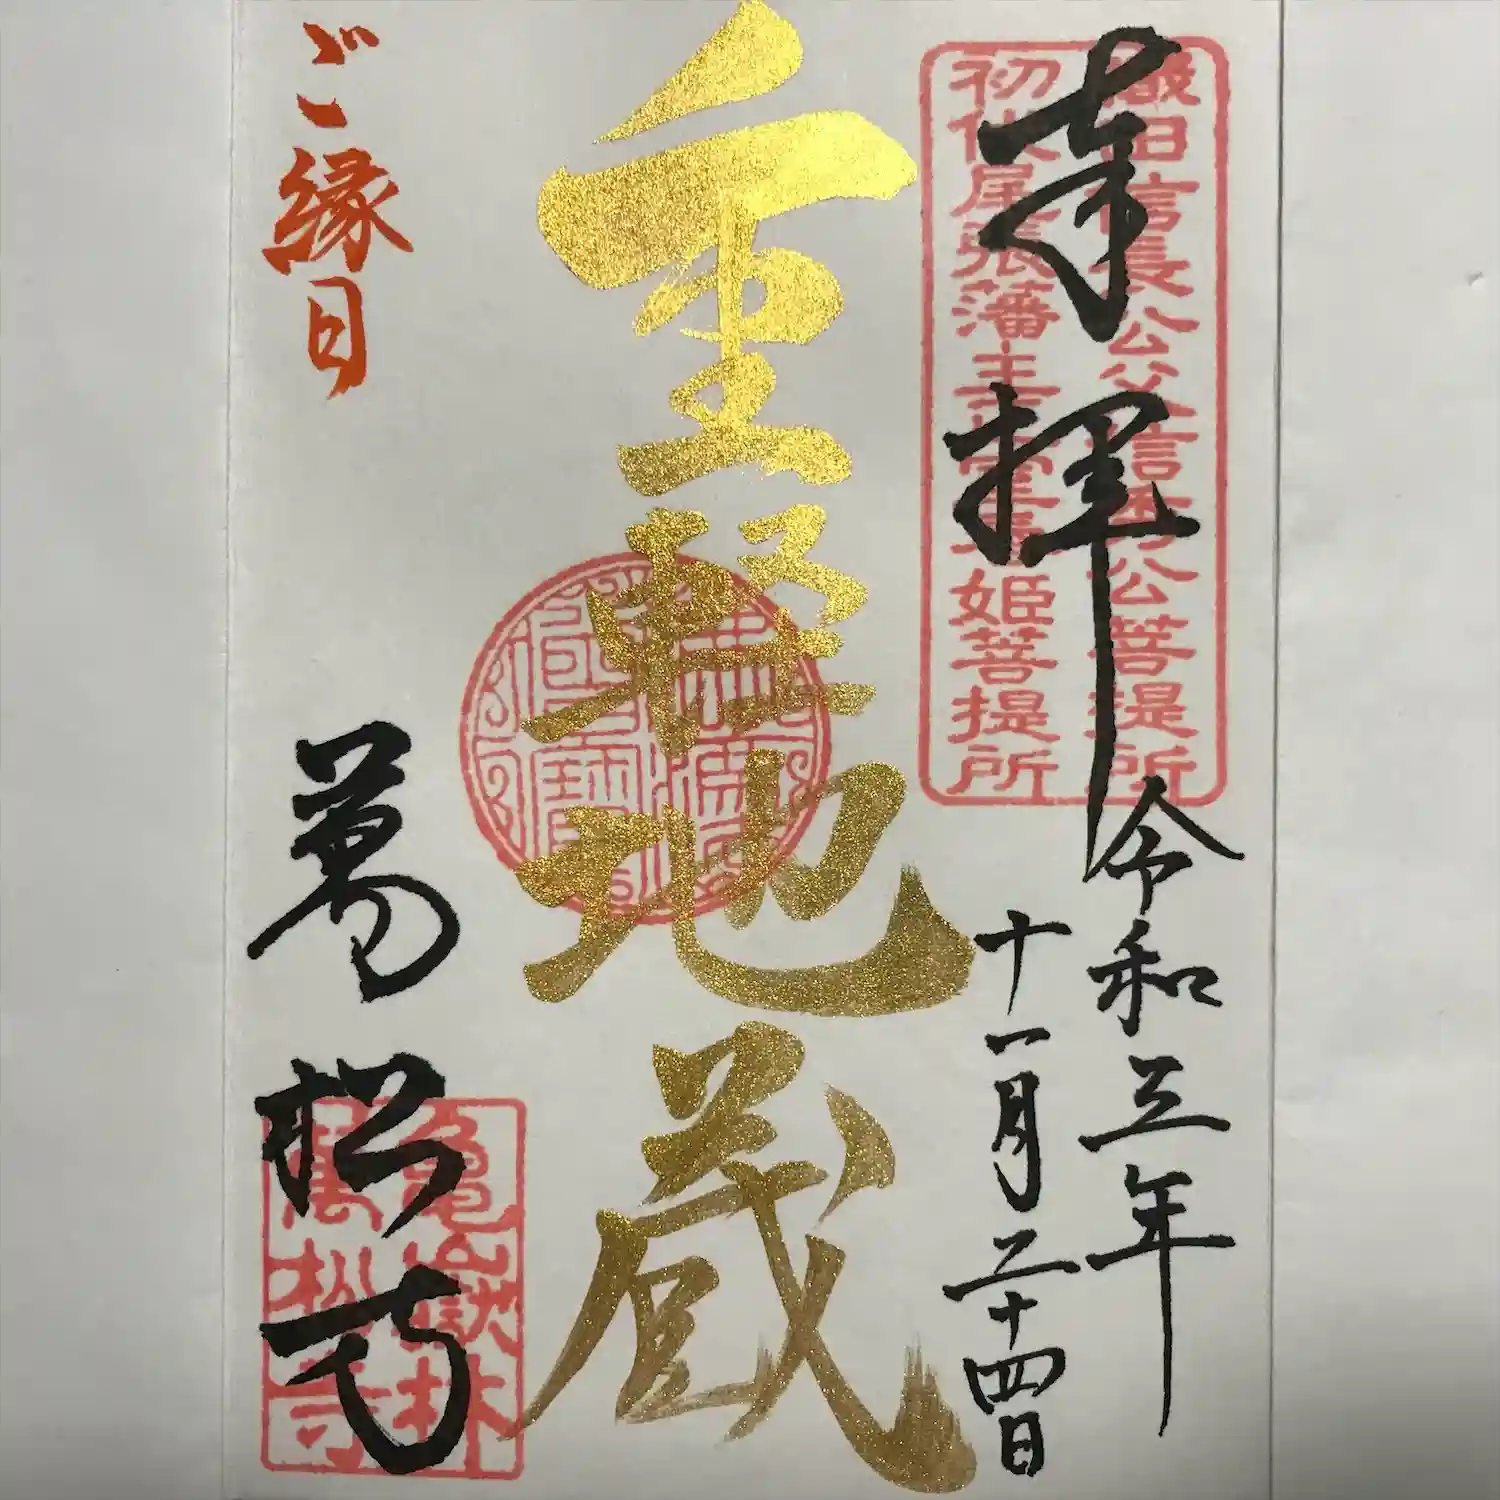 奉拝
織田信長公父信秀公菩提所
初代尾張藩主義直春姫菩提所
令和三年
十一月二十四日
重軽地蔵
ご縁日
萬松寺
亀嶽林
萬松寺